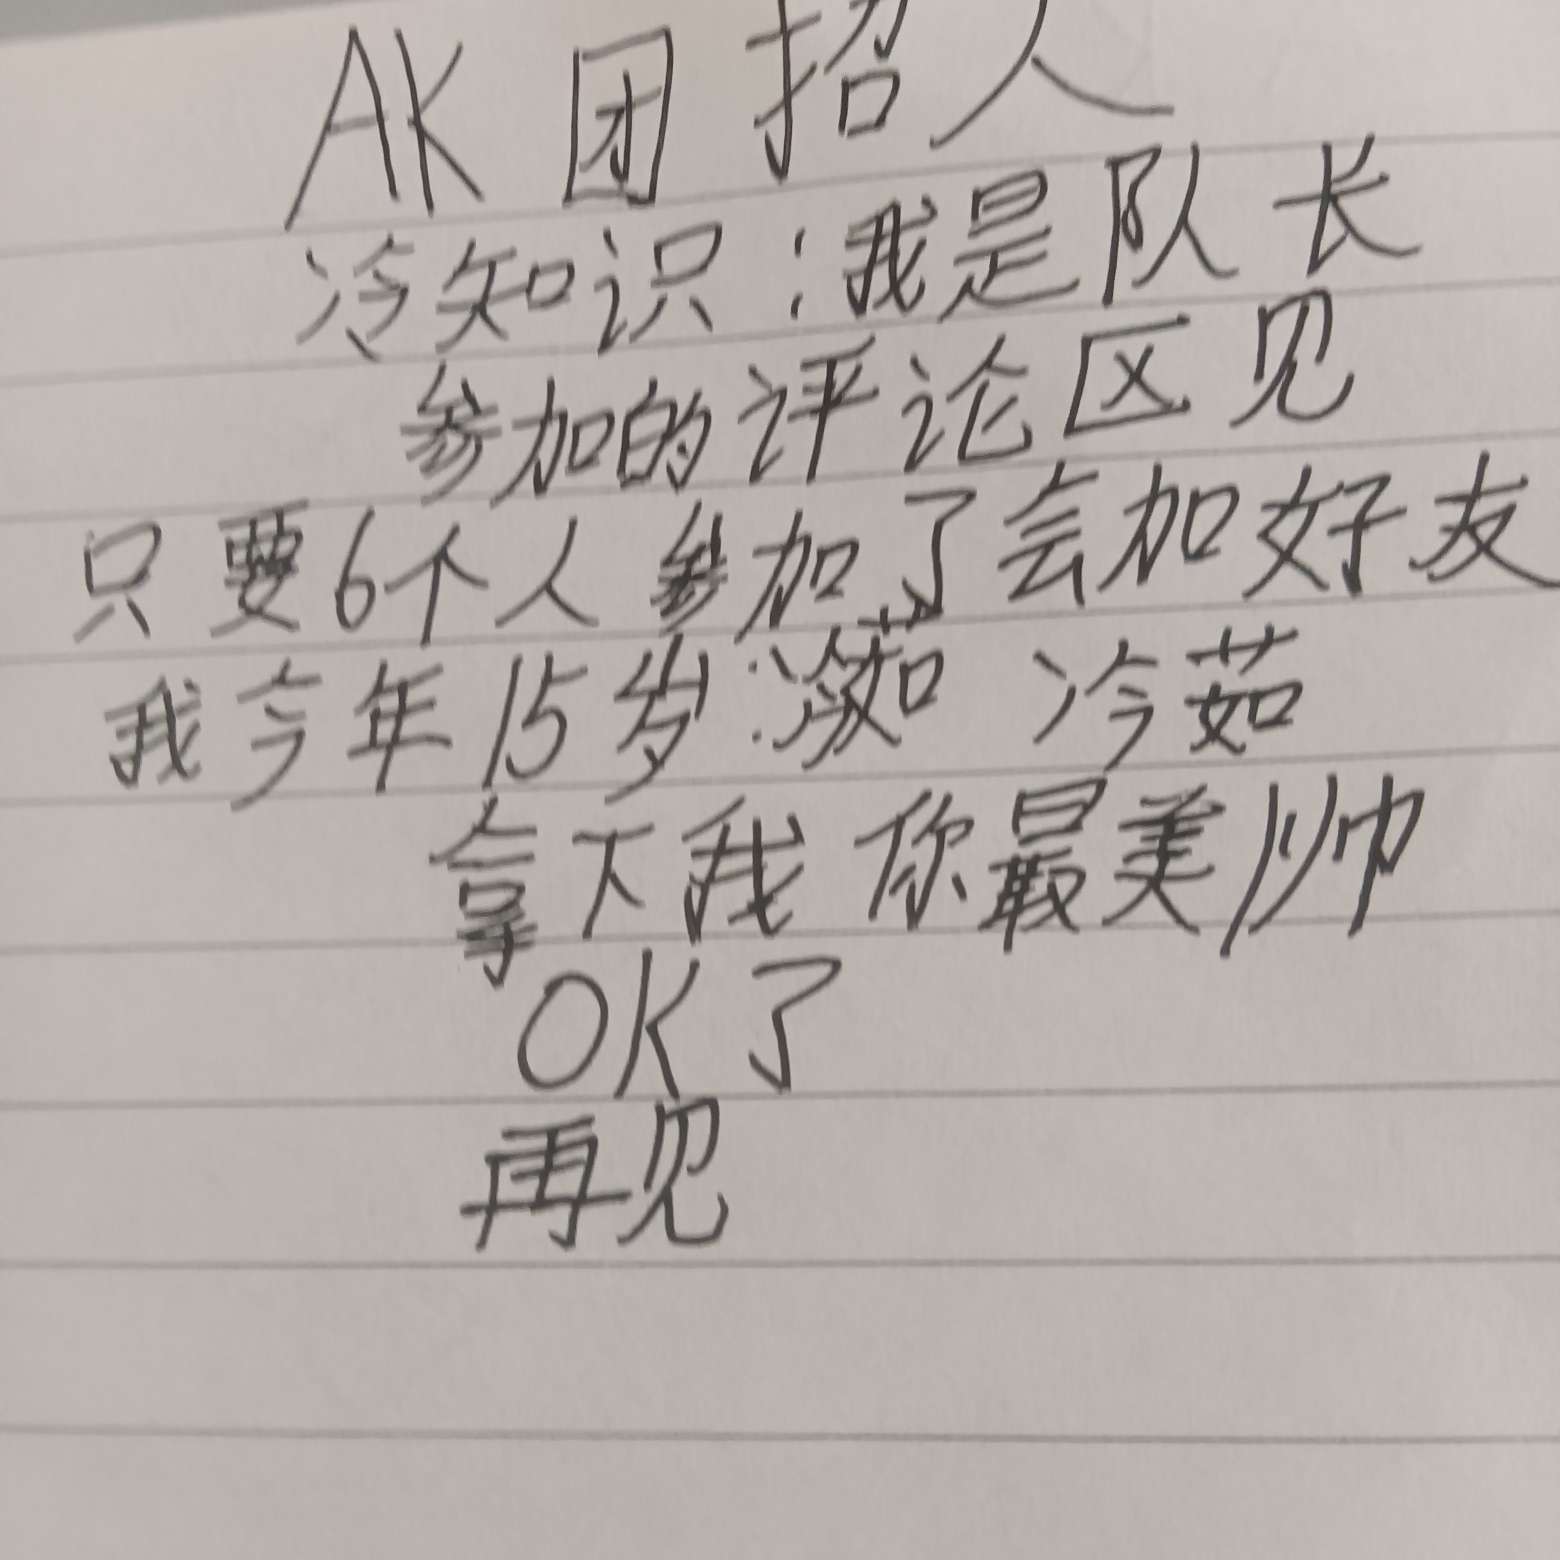 AK团招人
冷知识:我是队长
参加的评论区见
只要6个人参加了会加好友
我今年15岁: 冷茹
拿下我你最美帅
OK了
再见